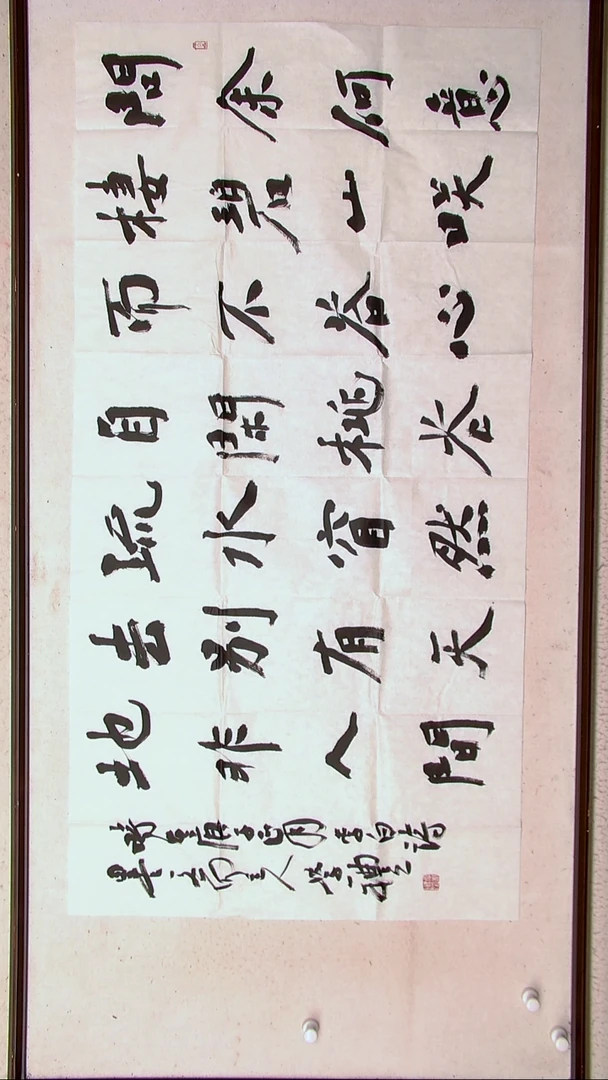 問余何意
棲碧山咲
而不答心
自閑桃花
流水窅然
去別有天
地非人間
李白詩